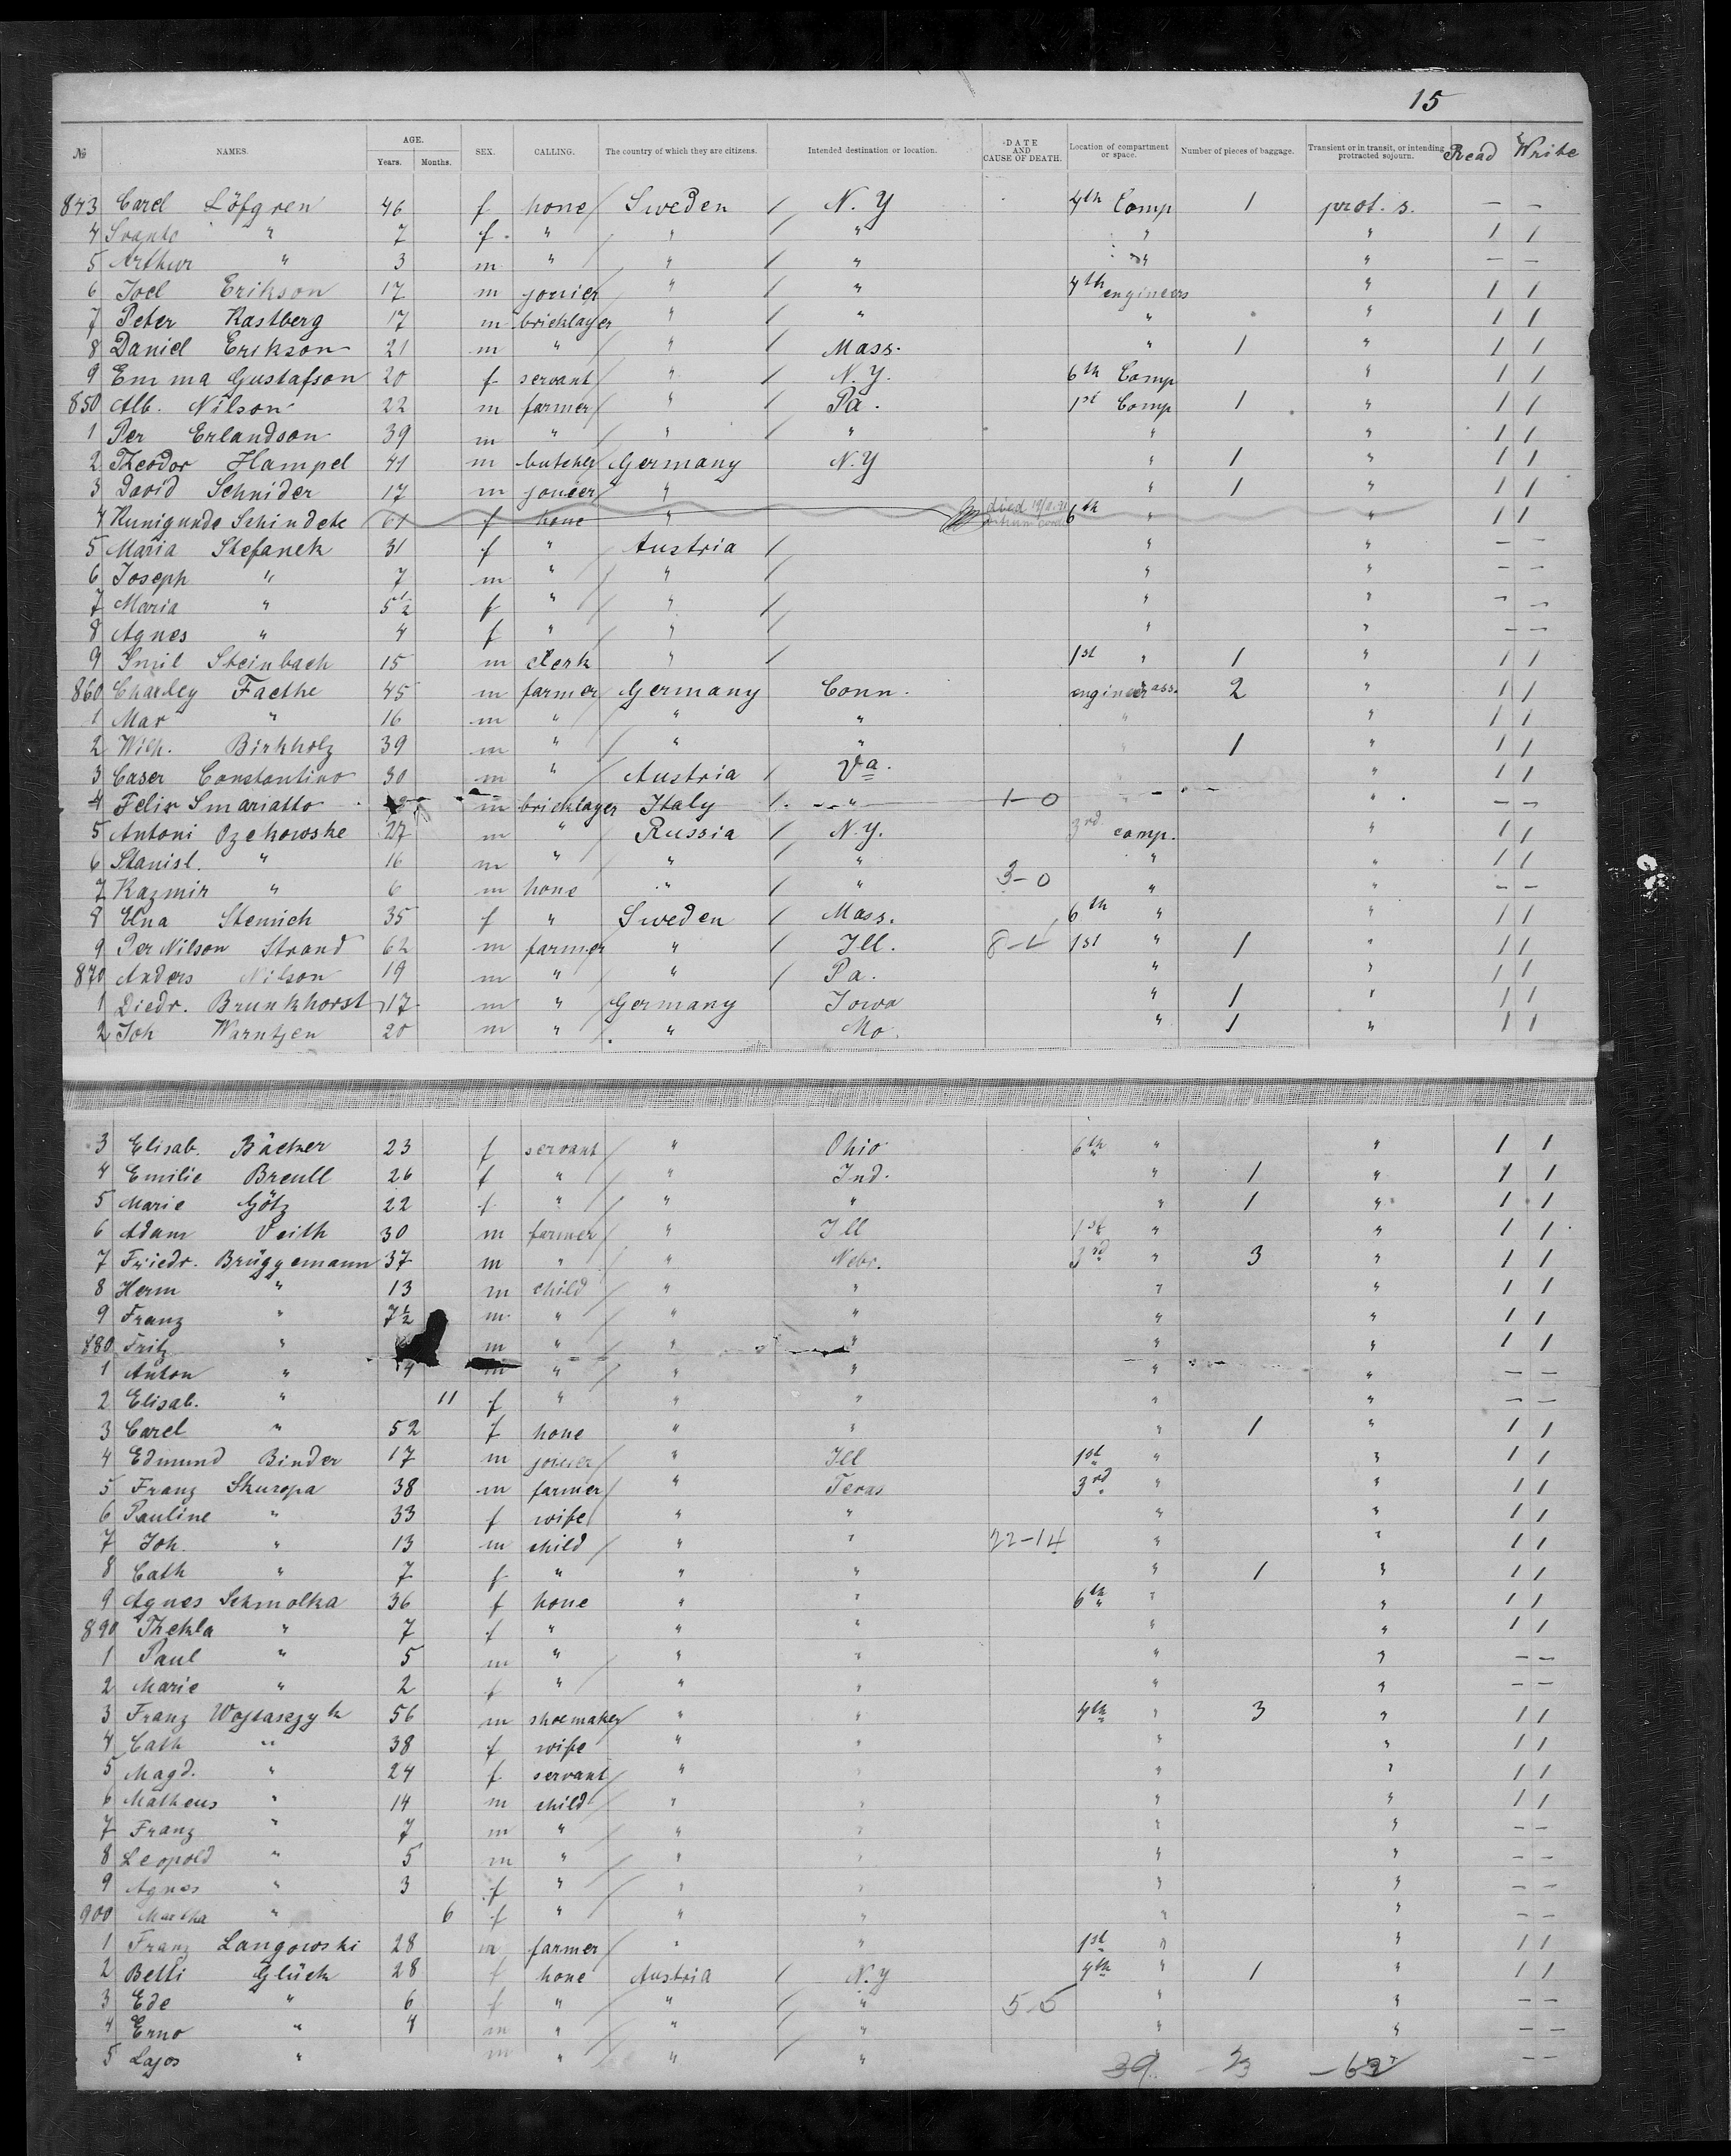 15
№ NAMES. AGE. Years. Months. SEX. CALLING. The country of which they are citizens. Intended destination or location. DATE AND CAUSE OF DEATH. Location of compartment or space. Number of pieces of baggage. Transient or in transit, or intending protracted sojourn. Read & Write
843 Carel Löfgren 46 f none / Sweden / N.Y 4th Comp 1 prot. s. — —
4 Svante " 7 f " / " / " " " 1 1
5 Arthur " 3 m " / " / " " " — —
6 Joel Erikson 17 m jonier / " / " 4th engineers " 1 1
7 Peter Kastberg 17 m bricklayer " / " " " 1 1
8 Daniel Erikson 21 m " / " / Mass. " 1 " 1 1
9 Emma Gustafson 20 f servant / " / N.Y. 6th Comp " 1 1
850 Alb. Nilson 22 m farmer / " / Pa. 1st Comp 1 " 1 1
1 Per Erlandson 39 m " / " / " " " 1 1
2 Theodor Hampel 41 m butcher Germany N.Y " 1 " 1 1
3 David Schnider 17 m joncer / " " 1 " 1 1
4 Kunigunde Schindele 61 f hone " died 6th " " 1 1
5 Maria Stefanek 31 f " Austria / " " — —
6 Joseph " 7 m " / " / " " — —
7 Maria " 5½ f " / " / " " — —
8 Agnes " 4 f " / " / " " — —
9 Emil Steinbach 15 m clerk " / 1st " 1 " 1 1
860 Charley Faethe 45 m farmer / Germany Conn. engineer ass. 2 " 1 1
1 Max " 16 m " / " " " " 1 1
2 Wilh. Birkholz 39 m " / " " " 1 " 1 1
3 Caser Constantino 30 m " / Austria / Va. " 1 1
4 Felix Smariatto m bricklayer Italy / " 1-0 " " — —
5 Antoni Ozehowske 27 m " Russia / N.Y. 3rd comp. " 1 1
6 Stanisl. " 16 m " " / " " " 1 1
7 Kazmir " 6 m hone " / " 3-0 " " — —
8 Elna Stenich 35 f " Sweden / Mass. 6th " " 1 1
9 Per Nilson Strand 62 m farmer " / Ill. 1st " 1 " 1 1
870 Anders Nilson 19 m " " / Pa. " " 1 1
1 Diedr. Brunkhorst 17 m " Germany Iowa " 1 " 1 1
2 Joh Warntjen 20 m " / " Mo. " 1 " 1 1
3 Elisab. Bäcker 23 f servant / " Ohio 6th " " 1 1
4 Emilie Breull 26 f " / " Ind. " 1 " 1 1
5 Marie Götz 22 f " / " " " 1 " 1 1
6 Adam Veith 30 m farmer / " Ill 1st " " 1 1
7 Friedr. Brüggemann 37 m " / " Nebr. 3rd " 3 " 1 1
8 Herm " 13 m child / " " " " 1 1
9 Franz " 7½ m " / " " " " 1 1
880 Fritz " m " / " " " " 1 1
1 Anton " 4 m " / " " " " — —
2 Elisab. " 11 f " / " " " " — —
3 Carel " 52 f hone " " " 1 " 1 1
4 Edmund Binder 17 m joiner / " Ill 1st " " 1 1
5 Franz Skuropa 38 m farmer / " Texas 3rd " " 1 1
6 Pauline " 33 f wife " " " " 1 1
7 Joh. " 13 m child / " " 22-14 " " 1 1
8 Cath " 7 f " " " " 1 " 1 1
9 Agnes Schmolka 36 f hone " " 6th " " 1 1
890 Thekla " 7 f " " " " " 1 1
1 Paul " 5 m " / " " " " — —
2 Marie " 2 f " / " " " " — —
3 Franz Wojtaszyk 56 m shoemaker / " " 4th " 3 " 1 1
4 Cath " 38 f wife " " " " 1 1
5 Magd. " 24 f servant / " " " " 1 1
6 Matheus " 14 m child / " " " " 1 1
7 Franz " 7 m " / " " " " — —
8 Leopold " 5 m " / " " " " — —
9 Agnes " 3 f " / " " " " — —
900 Martha " 6 f " / " " " " — —
1 Franz Langowski 28 m farmer / " " 1st " " 1 1
2 Betti Glück 28 f hone Austria / N.Y 4th " 1 " 1 1
3 Ede " 6 f " / " / " 5-5 " " — —
4 Erno " 4 m " / " / " " " — —
5 Lajos " m " / " / " — —
39